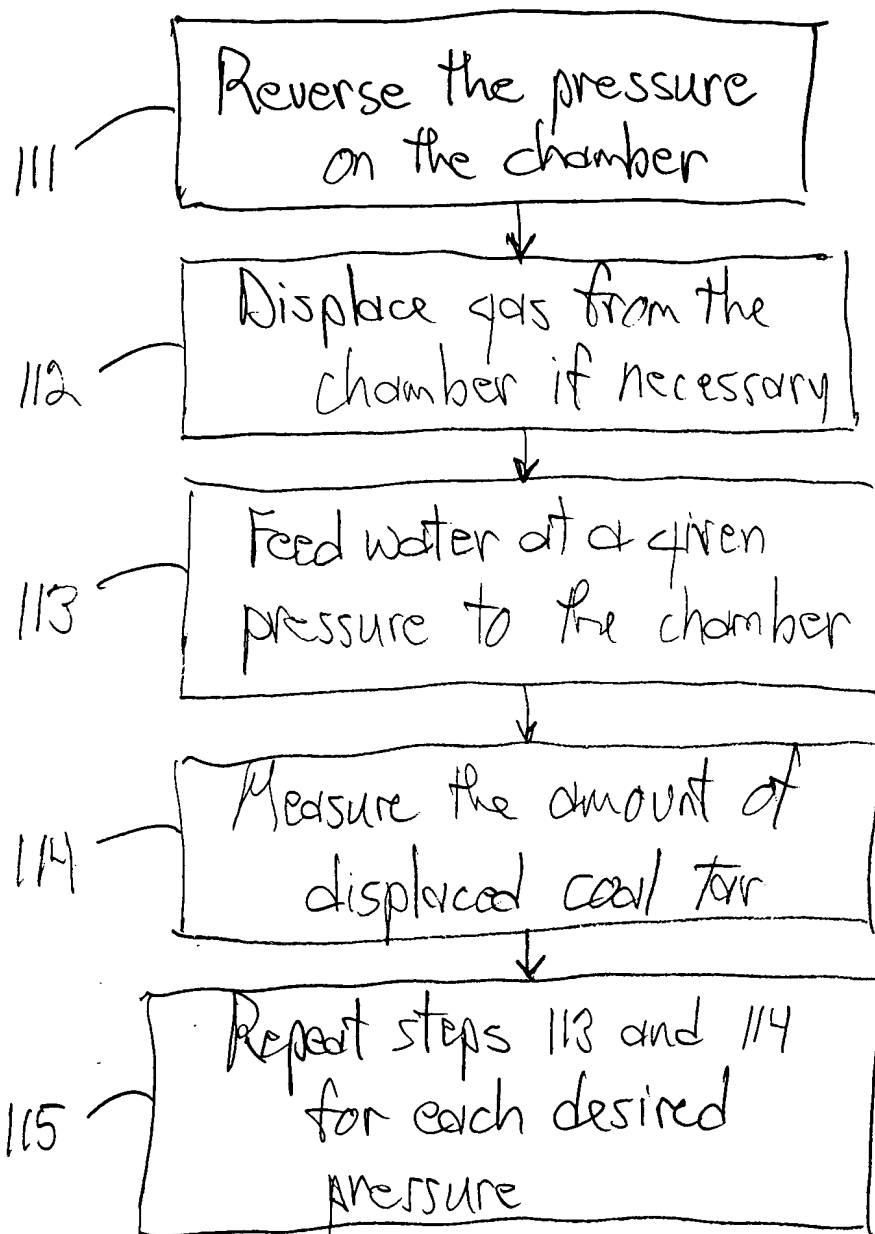 111
Reverse the pressure
on the chamber
112
Displace gas from the
chamber if necessary
113
Feed water at a given
pressure to the chamber
114
Measure the amount of
displaced coal tar
115
Repeat steps 113 and 114
for each desired
pressure